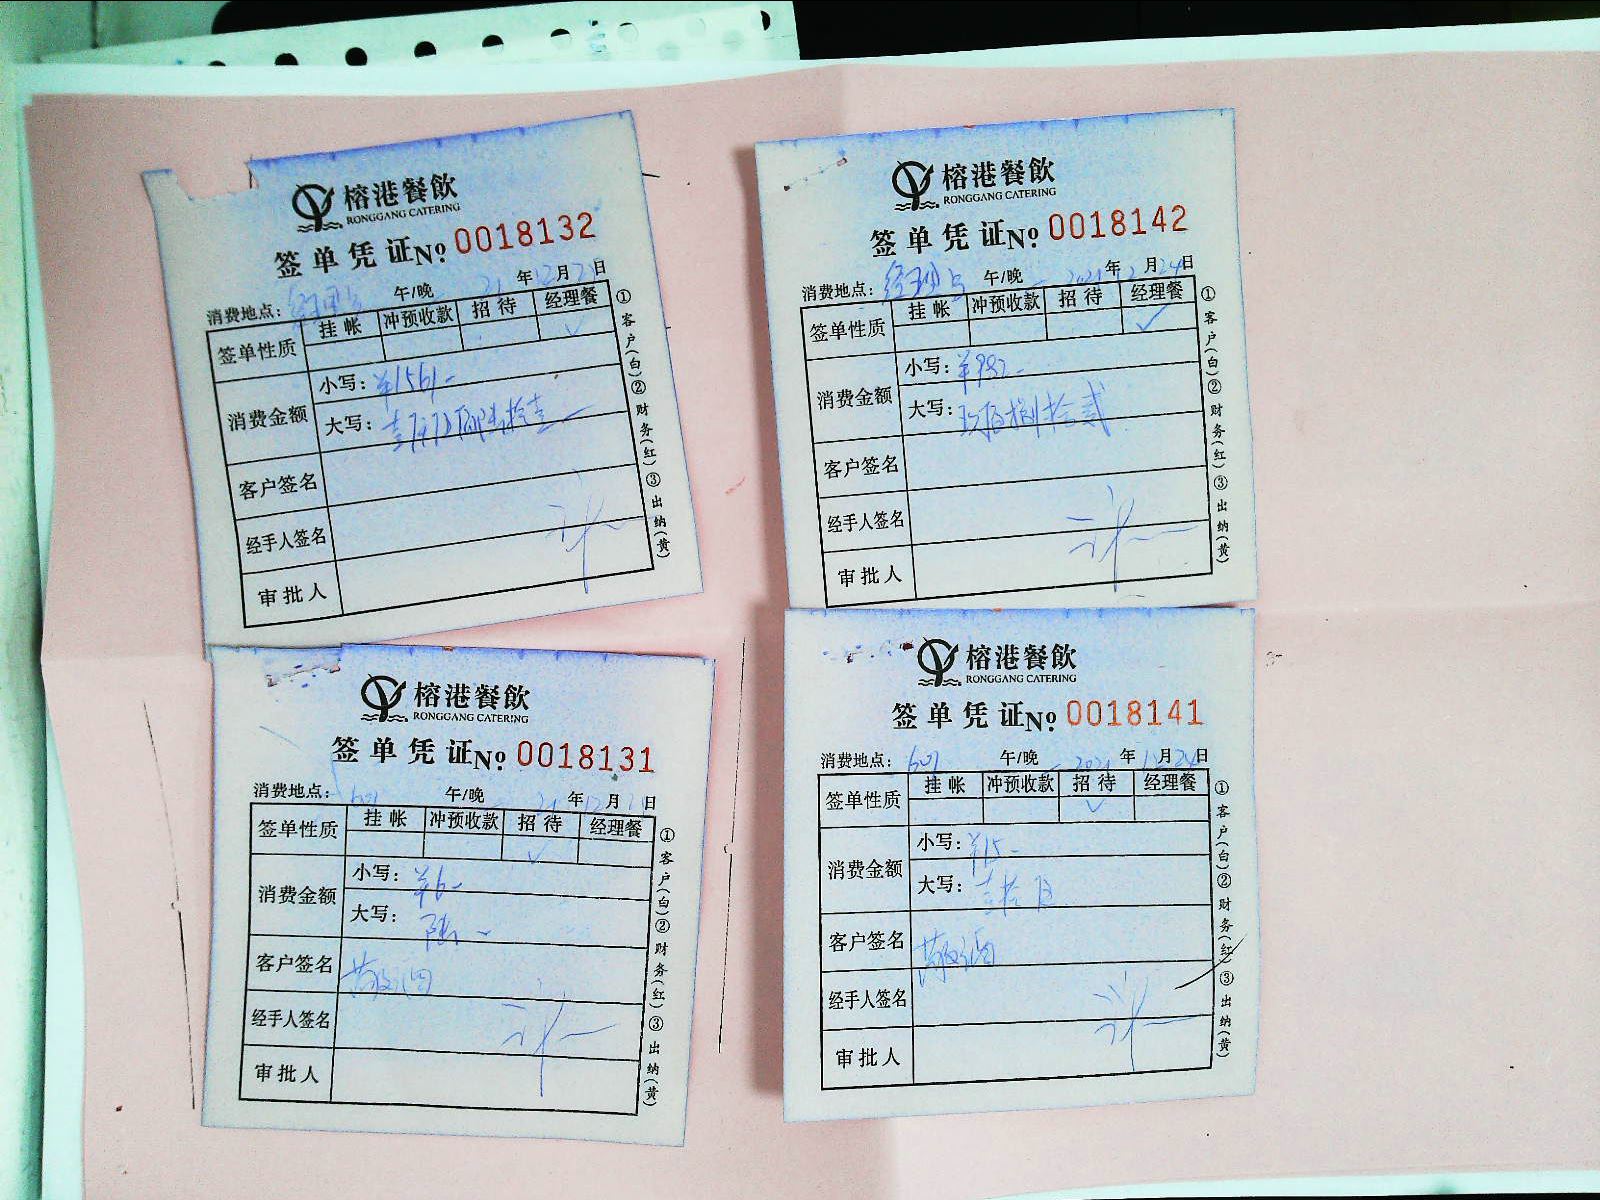 榕港餐飲
RONGGANG CATERING
签单凭证No 0018132
消费地点： 午/晚 21年12月21日
签单性质 挂帐 冲预收款 招待 经理餐
✓
消费金额 小写：¥1561-
大写：壹仟伍佰陆拾壹-
客户签名
经手人签名
审批人
①客户(白)②财务(红)③出纳(黄)
榕港餐飲
RONGGANG CATERING
签单凭证No 0018142
消费地点：经理 午/晚 2021年12月24日
签单性质 挂帐 冲预收款 招待 经理餐
✓
消费金额 小写：¥982-
大写：玖佰捌拾贰
客户签名
经手人签名
审批人
①客户(白)②财务(红)③出纳(黄)
榕港餐飲
RONGGANG CATERING
签单凭证No 0018131
消费地点：601 午/晚 21年12月21日
签单性质 挂帐 冲预收款 招待 经理餐
✓
消费金额 小写：¥6-
大写：陆-
客户签名
经手人签名
审批人
①客户(白)②财务(红)③出纳(黄)
榕港餐飲
RONGGANG CATERING
签单凭证No 0018141
消费地点：601 午/晚 2021年12月24日
签单性质 挂帐 冲预收款 招待 经理餐
✓
消费金额 小写：¥15-
大写：壹拾伍
客户签名
经手人签名
审批人
①客户(白)②财务(红)③出纳(黄)